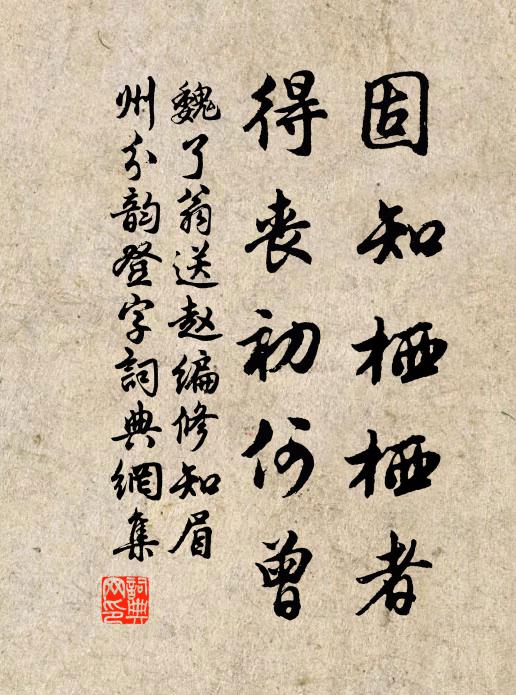 固知栖栖者
得丧初何曾
魏了翁送赵编修知眉
州分韵登字詞典網集
詞典網印